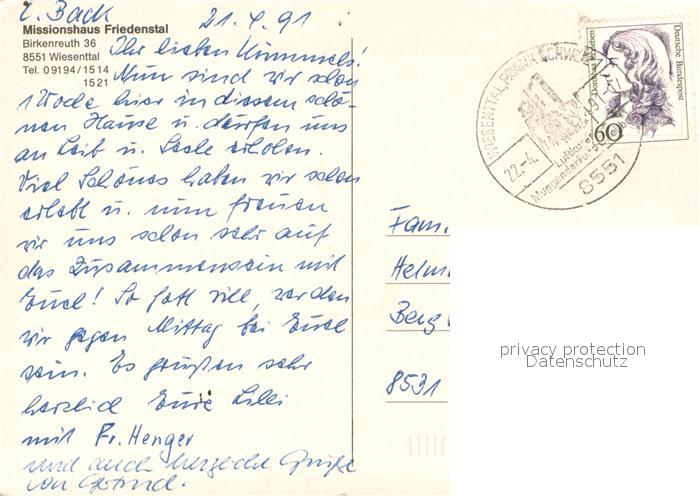 L. Back 21.4.91
Missionshaus Friedenstal
Birkenreuth 36
8551 Wiesenttal
Tel. 09194/1514
1521
Ihr lieben Kümmels!
Nun sind wir schon
1 Woche hier in diesem schö-
nen Hause u. dürfen uns
an Leib u. Seele erholen.
Viel Schönes haben wir schon
erlebt u. nun freuen
wir uns schon sehr auf
das Zusammensein mit
Euch! So Gott will, werden
wir gegen Mittag bei Euch
sein. Es grüßen sehr
herzlich Eure Lilli
mit Fr. Henger
und auch herzliche Grüße
von
WIESENTTAL, FRÄNK. SCHWEIZ
22.-4.
8551
Deutsche Bundespost
60
Fam.
Helm
Berg
8531
privacy protection
Datenschutz